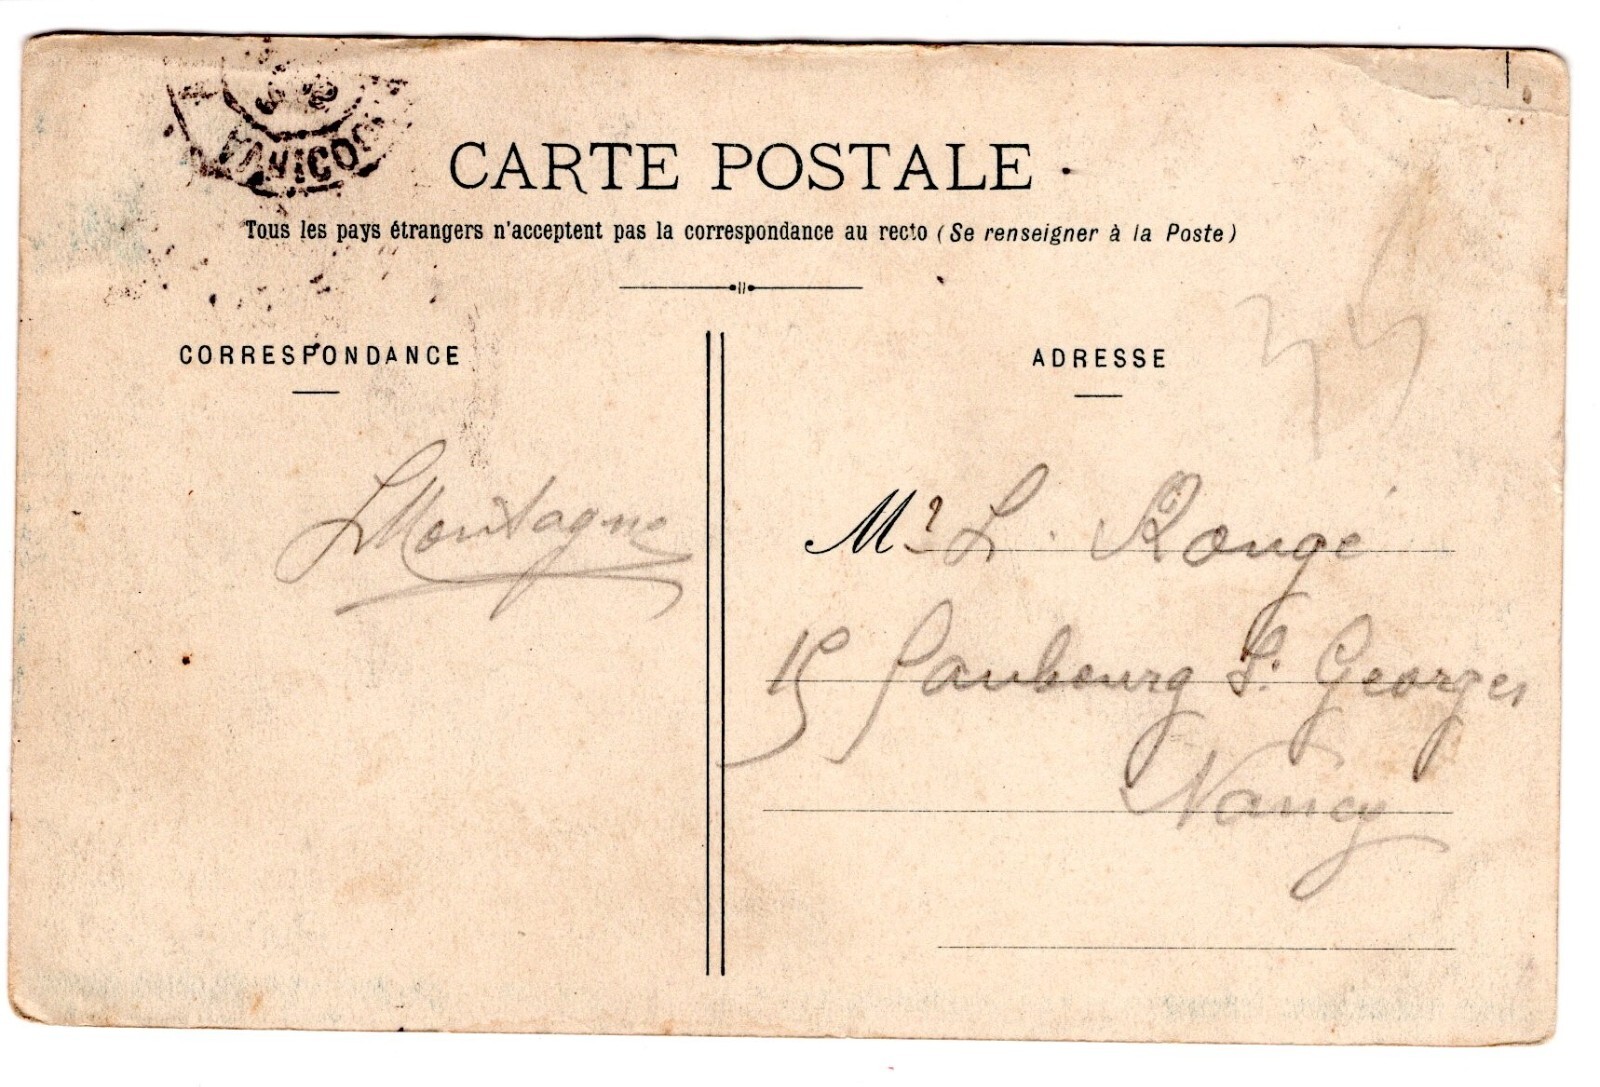 CARTE POSTALE
Tous les pays étrangers n'acceptent pas la correspondance au recto (Se renseigner à la Poste)
CORRESPONDANCE
LMontagne
ADRESSE
Mr L. Rougé
15 Faubourg St Georges
Nancy